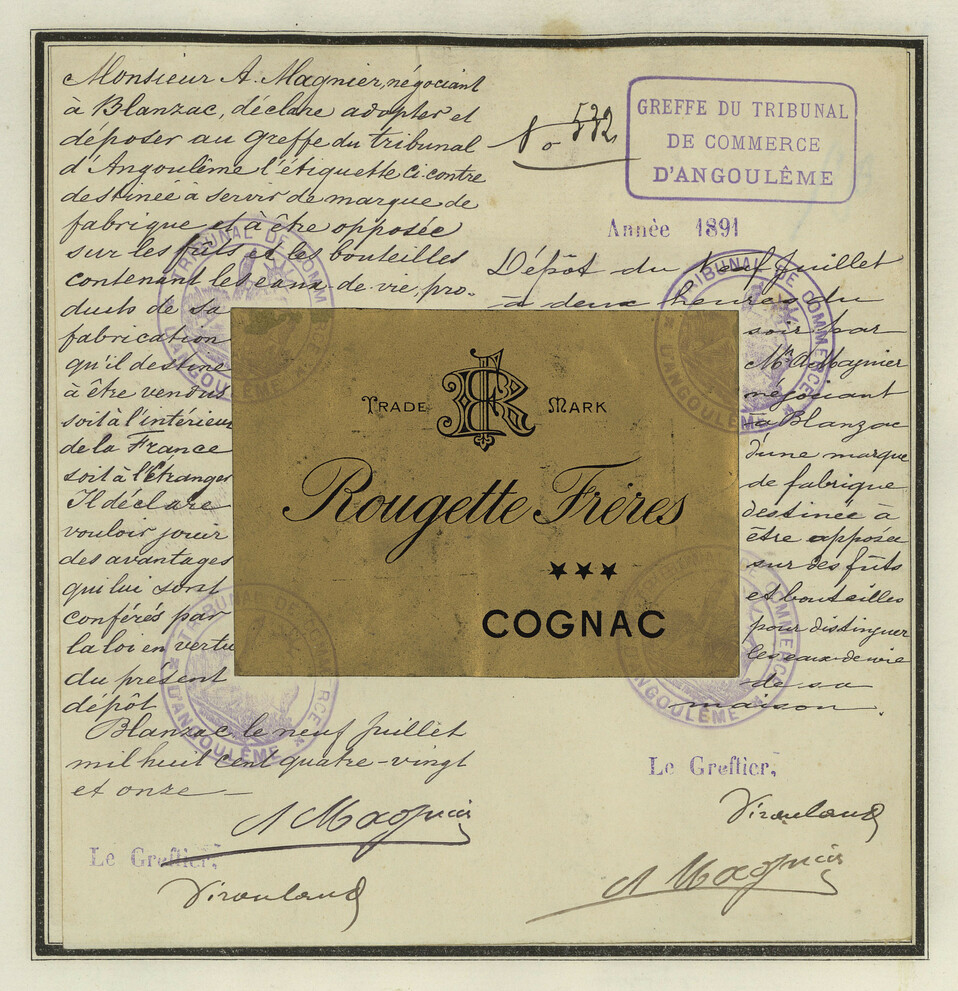 Monsieur A. Magnier, négociant
à Blanzac, déclare adopter et
déposer au greffe du tribunal
d'Angoulême l'étiquette ci-contre
destinée à servir de marque de
fabrique et à être opposée
sur les fûts et les bouteilles
contenant les eaux-de-vie, pro-
duits de sa
fabrication
qu'il destine
à être vendus
soit à l'intérieur
de la France
soit à l'étranger
Il déclare
vouloir jouir
des avantages
qui lui sont
conférés par
la loi en vertu
du présent
dépôt
Blanzac le neuf Juillet
mil huit cent quatre-vingt
et onze
A Magnier
Le Greffier,
No 532
GREFFE DU TRIBUNAL
DE COMMERCE
D'ANGOULÊME
Année 1891
Dépôt du neuf Juillet
à deux heures du
soir par
Mr A. Magnier
négociant
à Blanzac
d'une marque
de fabrique
destinée à
être apposée
sur des fûts
et bouteilles
pour distinguer
les eaux-de-vie
de sa
maison.
Le Greffier,
A Magnier
TRADE ER MARK
Rougette Frères
★★★
COGNAC
TRIBUNAL DE COMMERCE
D'ANGOULÊME
TRIBUNAL DE COMMERCE
D'ANGOULÊME
TRIBUNAL DE COMMERCE
D'ANGOULÊME
TRIBUNAL DE COMMERCE
D'ANGOULÊME